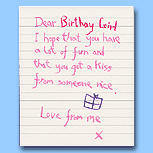 Dear Birthday Girl
I hope that you have
a lot of fun and
that you get a kiss
from someone nice.
Love from me
x